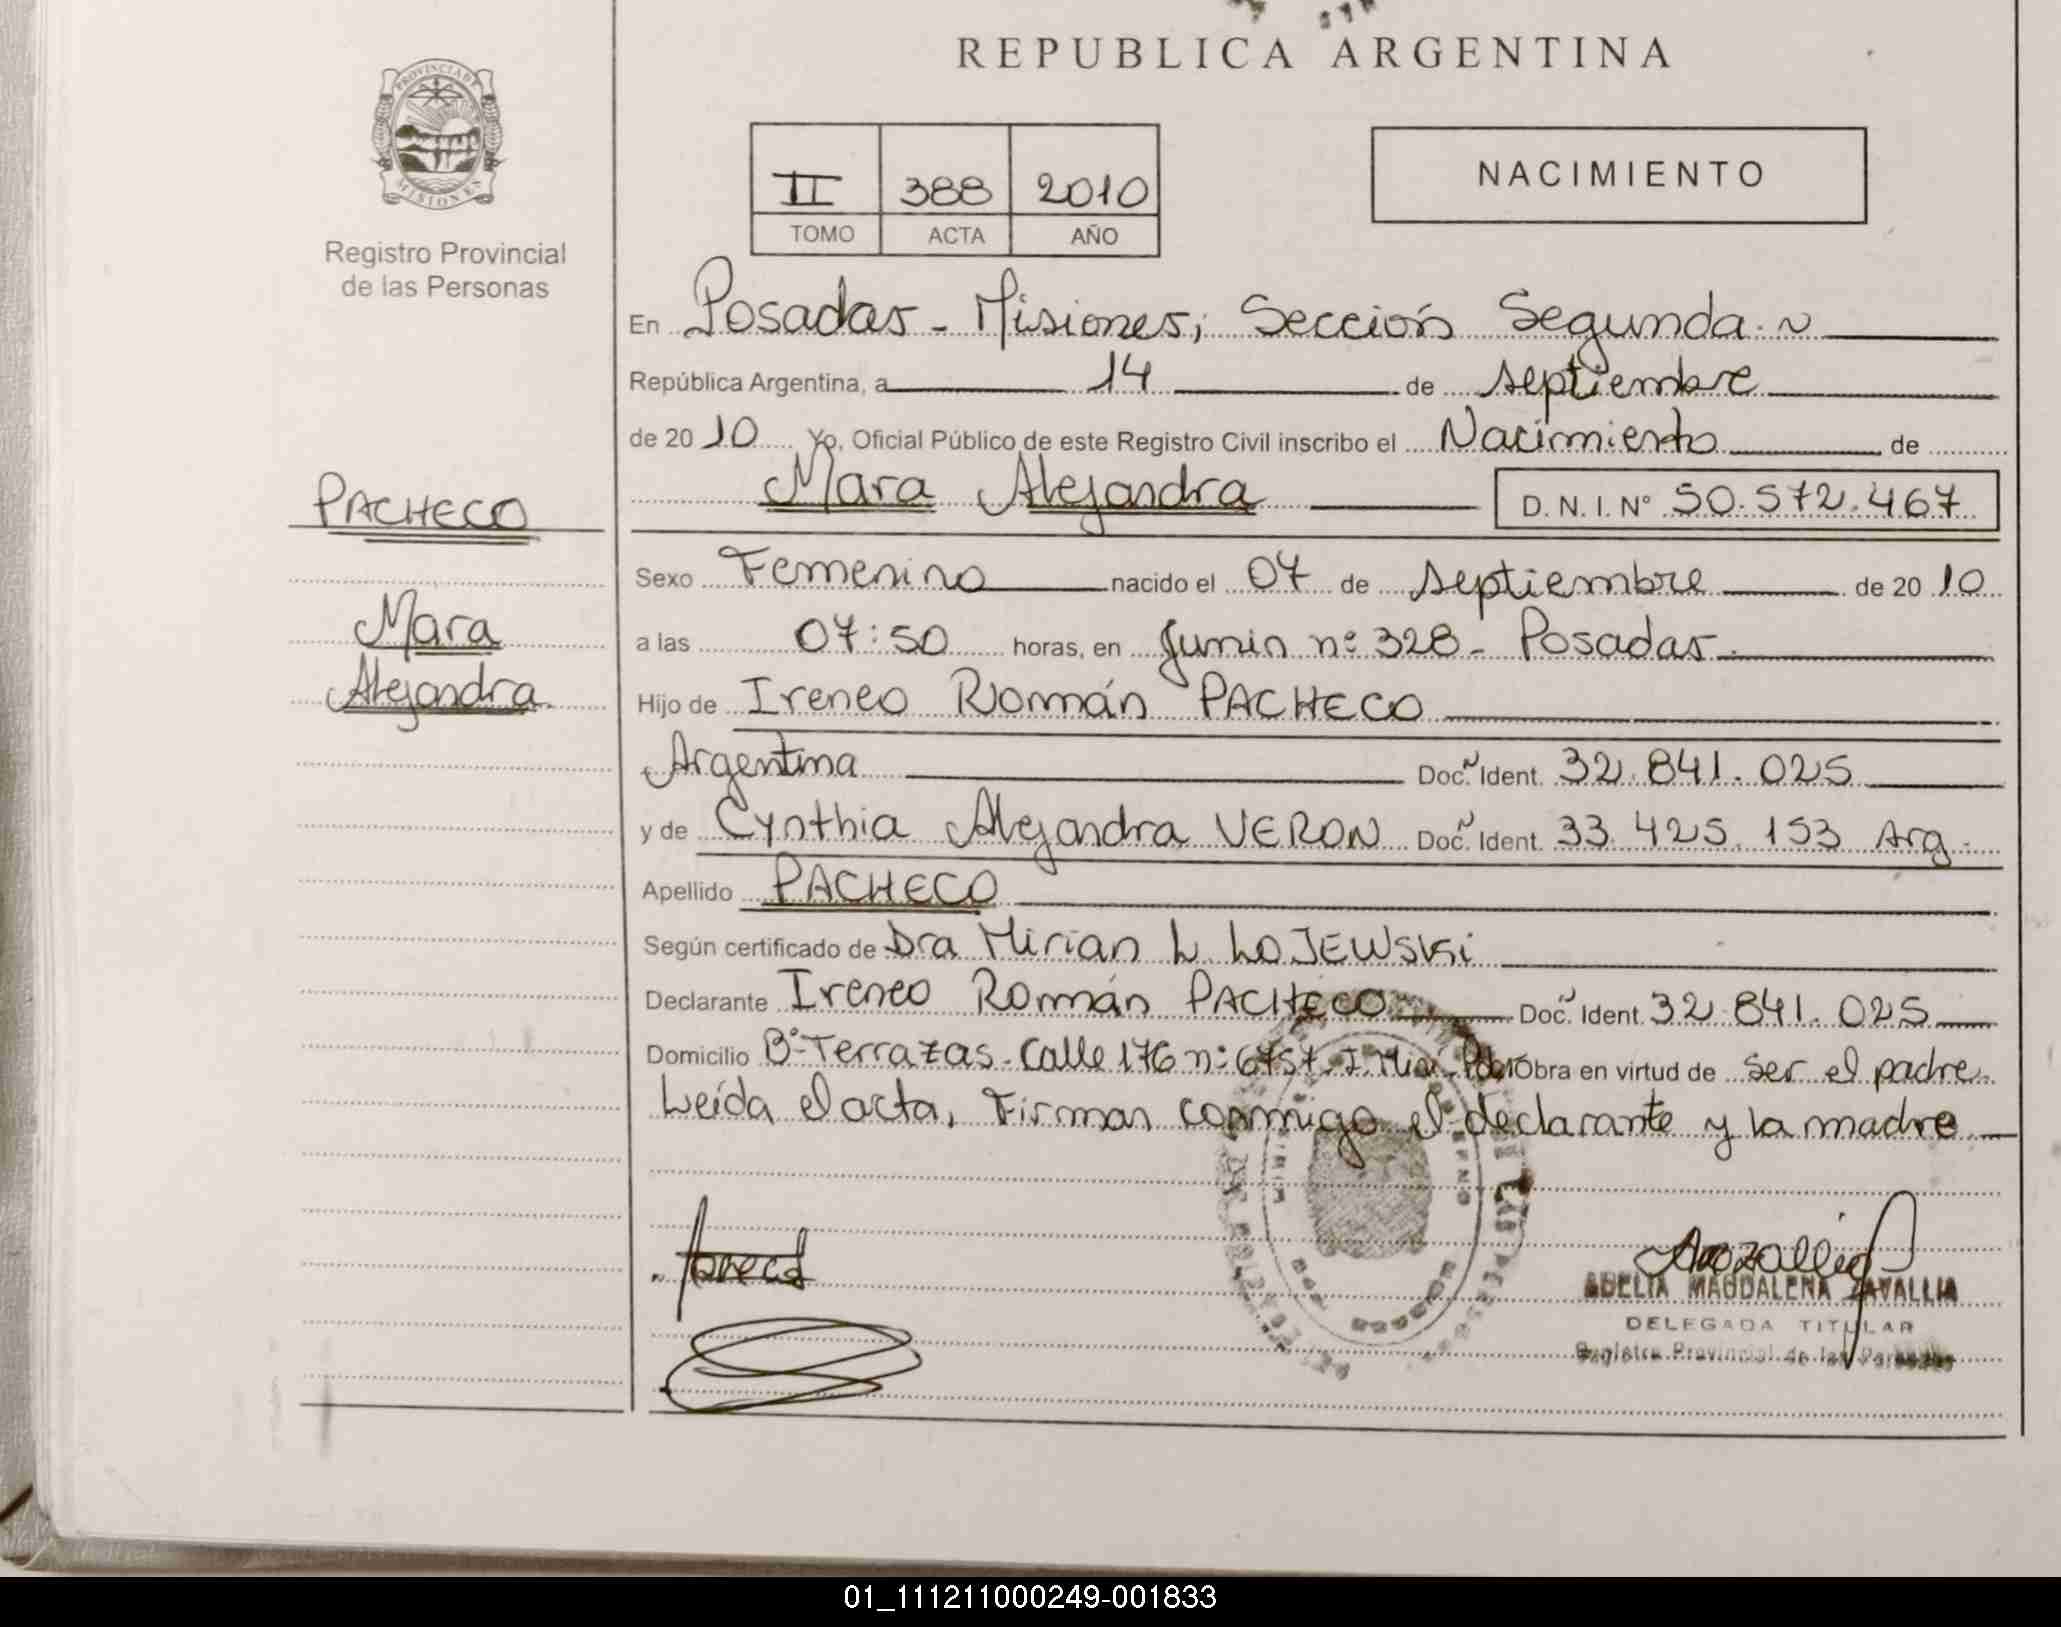 REPUBLICA ARGENTINA
PROVINCIA DE MISIONES
Registro Provincial
de las Personas
NACIMIENTO
II 388 2010
TOMO ACTA AÑO
En Posadas - Misiones; Sección Segunda.~
República Argentina, a 14 de septiembre
de 2010 Yo, Oficial Público de este Registro Civil inscribo el Nacimiento de
Mara Alejandra D.N.I.Nº 50.572.467
PACHECO
Mara
Alejandra.
Sexo Femenino nacido el 07 de septiembre de 2010
a las 07:50 horas, en Junin nº 328 - Posadas.
Hijo de Ireneo Román PACHECO
Argentina Doc. Ident. 32.841.025
y de Cynthia Alejandra VERON Doc. Ident. 33.425.153 Arg.
Apellido PACHECO
Según certificado de Dra Mirian L. LOJEWSKi
Declarante Ireneo Román PACHECO Doc. Ident. 32.841.025
Domicilio Bº Terrazas - Calle 176 nº 6757. Obra en virtud de ser el padre.
Leída el acta, Firman conmigo el declarante y la madre
ADELIA MAGDALENA ZAVALLIA
DELEGADA TITULAR
Registro Provincial de las Personas
01_111211000249-001833